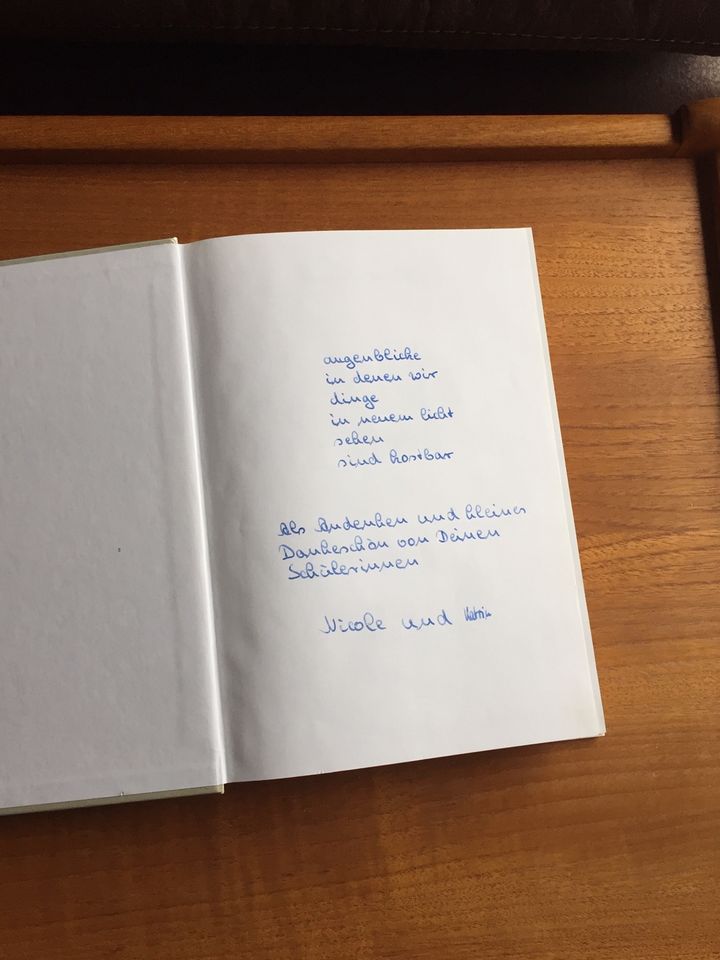 augenblicke
in denen wir
dinge
in neuem licht
sehen
sind kostbar
Als Andenken und kleines
Dankeschön von Deinen
Schülerinnen
Nicole und Katrin